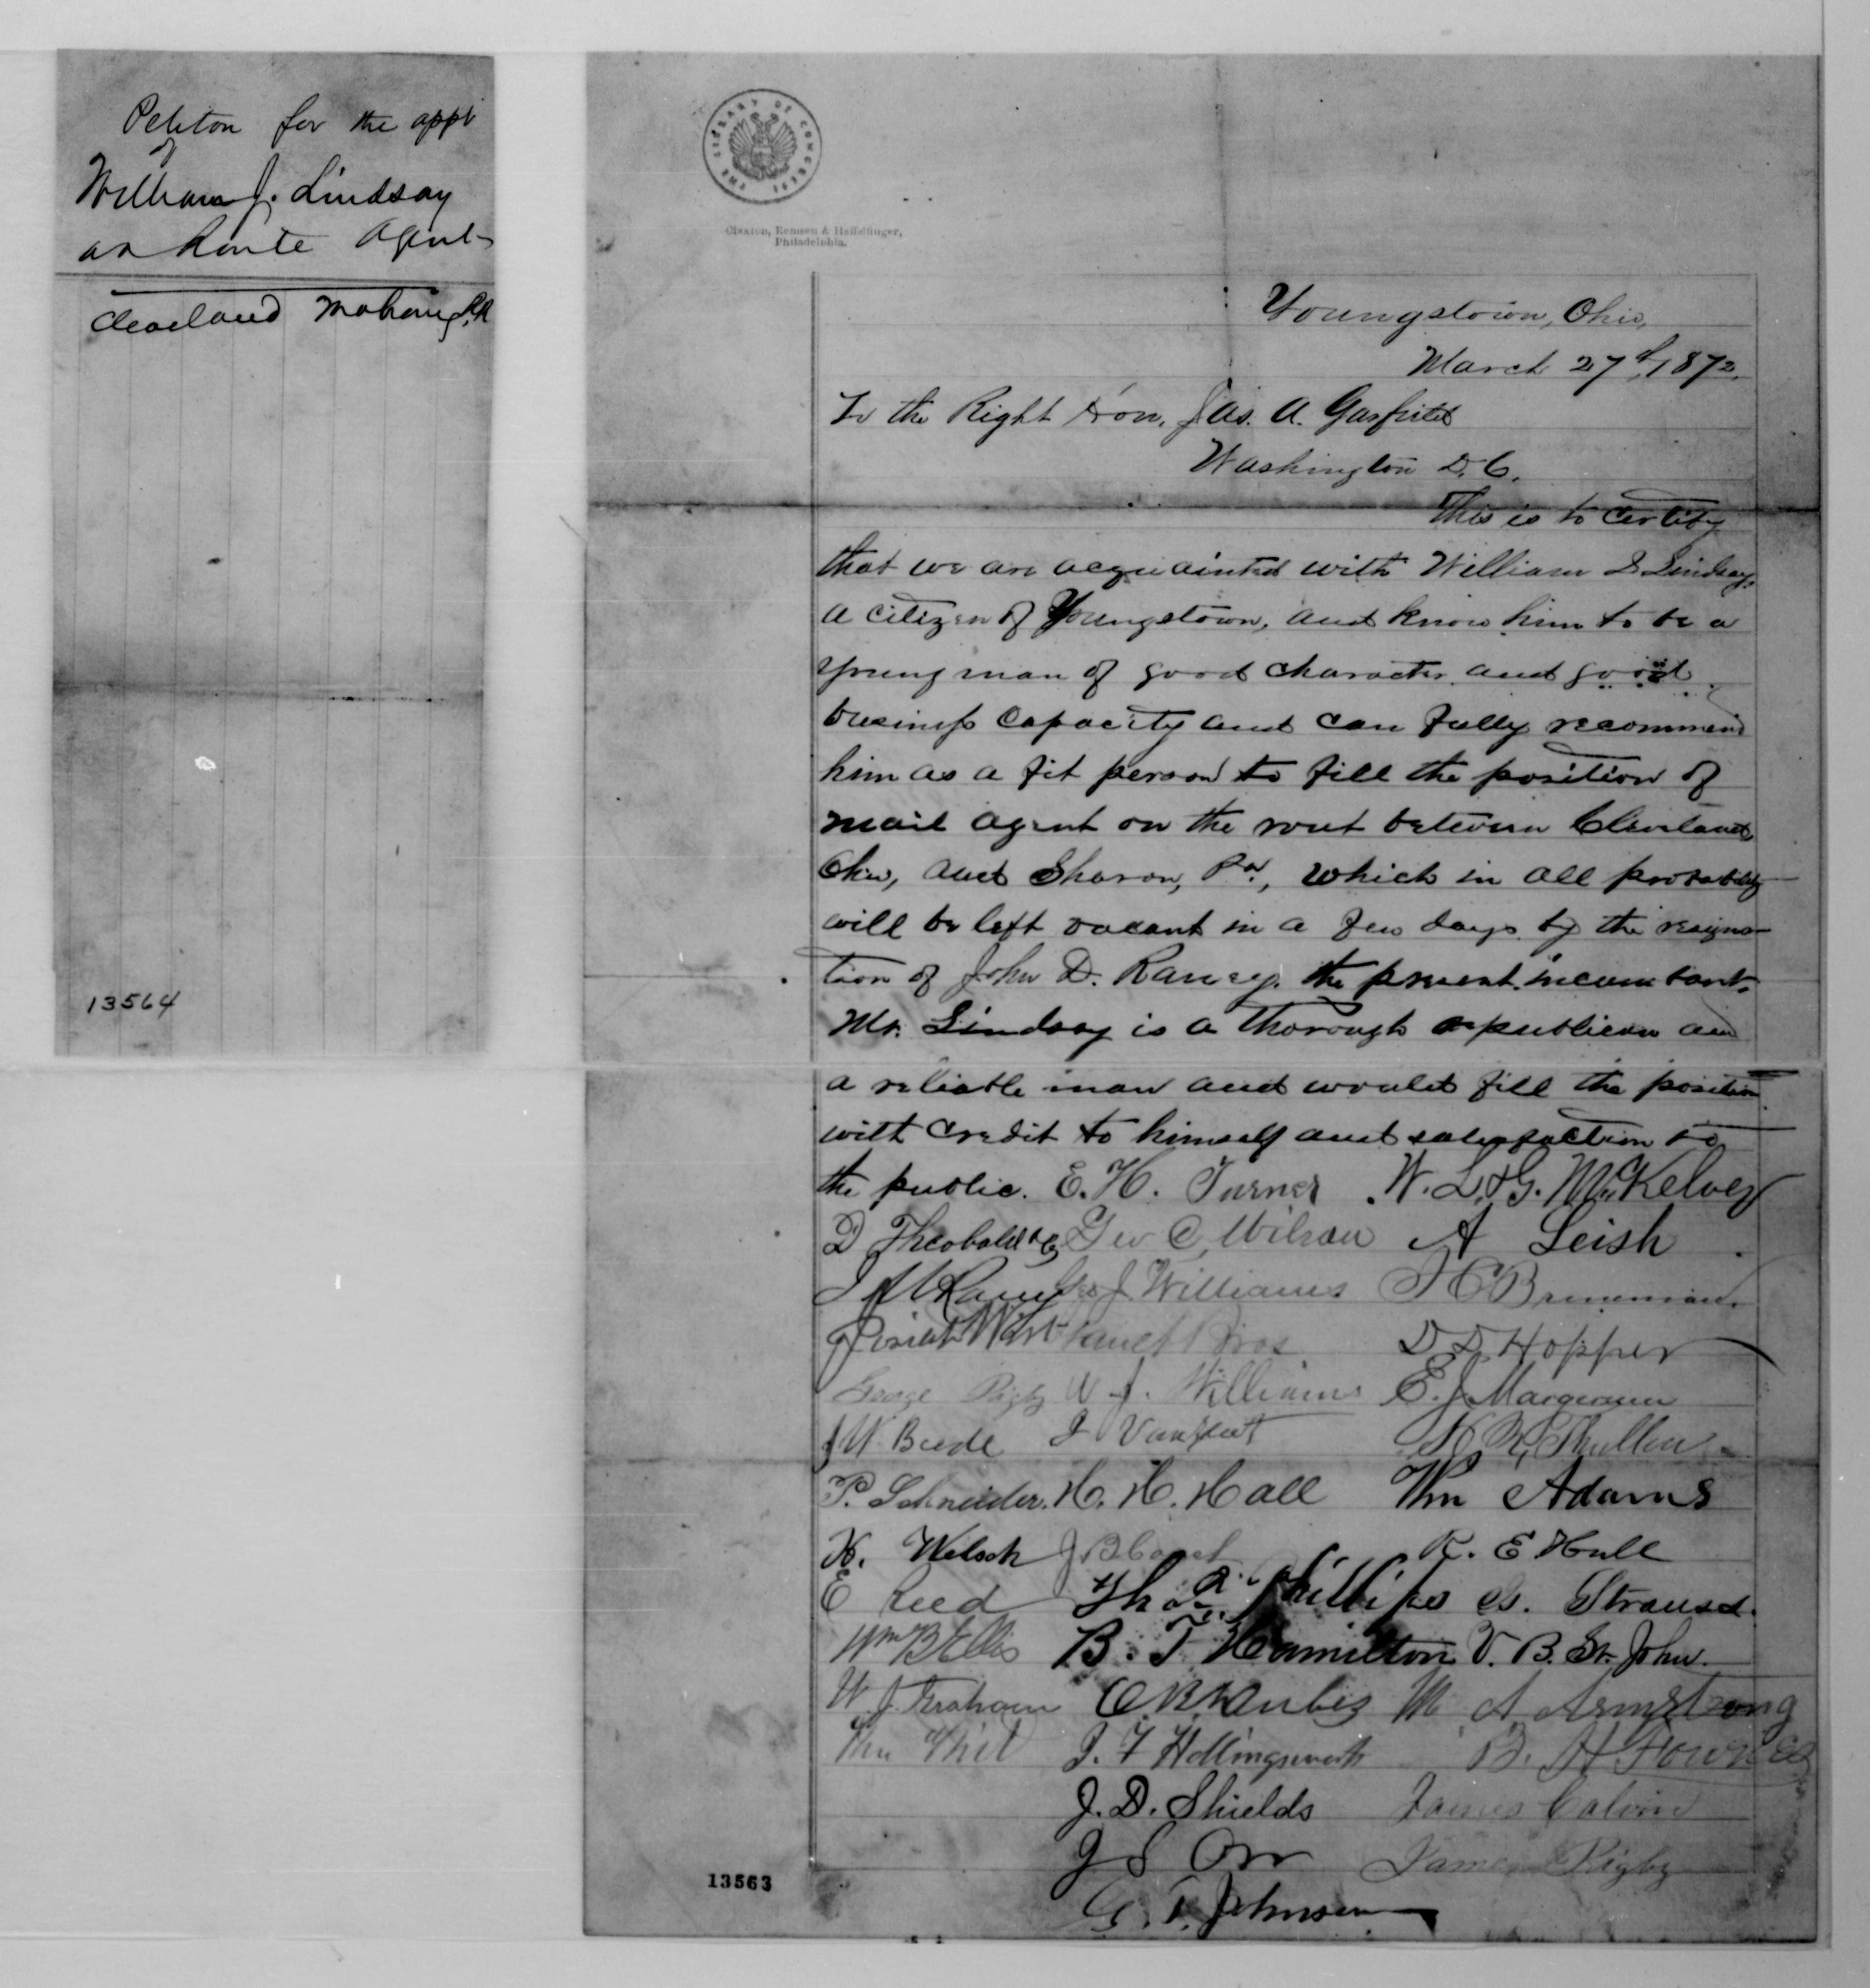 Petiton for the appt
of
William J. Lindsay
as Route Agent
Cleaveland Mahoning R.R
13564
THE LIBRARY OF CONGRESS
Claxton, Remsen & Haffelfinger,
Philadelphia.
Youngstown, Ohio,
March 27th, 1872.
To the Right Hon. Jas. A. Garfield
Washington D.C.
This is to certify
that we are acquainted with William J Lindsay,
a citizen of Youngstown, and know him to be a
young man of good character and good
business capacity and can fully recommend
him as a fit person to fill the position of
mail agent on the rout between Cleveland,
Ohio, and Sharon, Pa, which in all probability
will be left vacant in a few days by the resigna-
tion of John D. Raney, the present incumbant.
Mr. Lindsay is a thorough republican and
a reliable man and would fill the position
with credit to himself and satisfaction to
the public. E. H. Turner W. L. & G. McKelvey
D Theobald & Co Geo C. Wilson A Leish
Raney Geo J. Williams
Josiah West Bros D. D. Hopper
George Rigby W J. Williams E. J. Margerum
J W Beede J Vanfleet
P. Schneider. H. H. Hall Wm Adams
H. Welsch R. E Hull
E Reed Thos. Phillips G. Strauss.
Wm B Ellis B. F Hamilton V. B. St. John.
W. J. Graham M A Armstrong
Wm J. F Hollingsworth B. H.
J. D. Shields James Calvin
J S Orr James Rigby
G. T. Johnson
13563